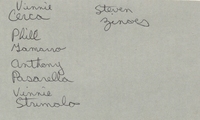 Vinnie
Cerca
Phill
Gamarro
Anthony
Pasarella
Vinnie
Strumolo
Steven
Zinoes